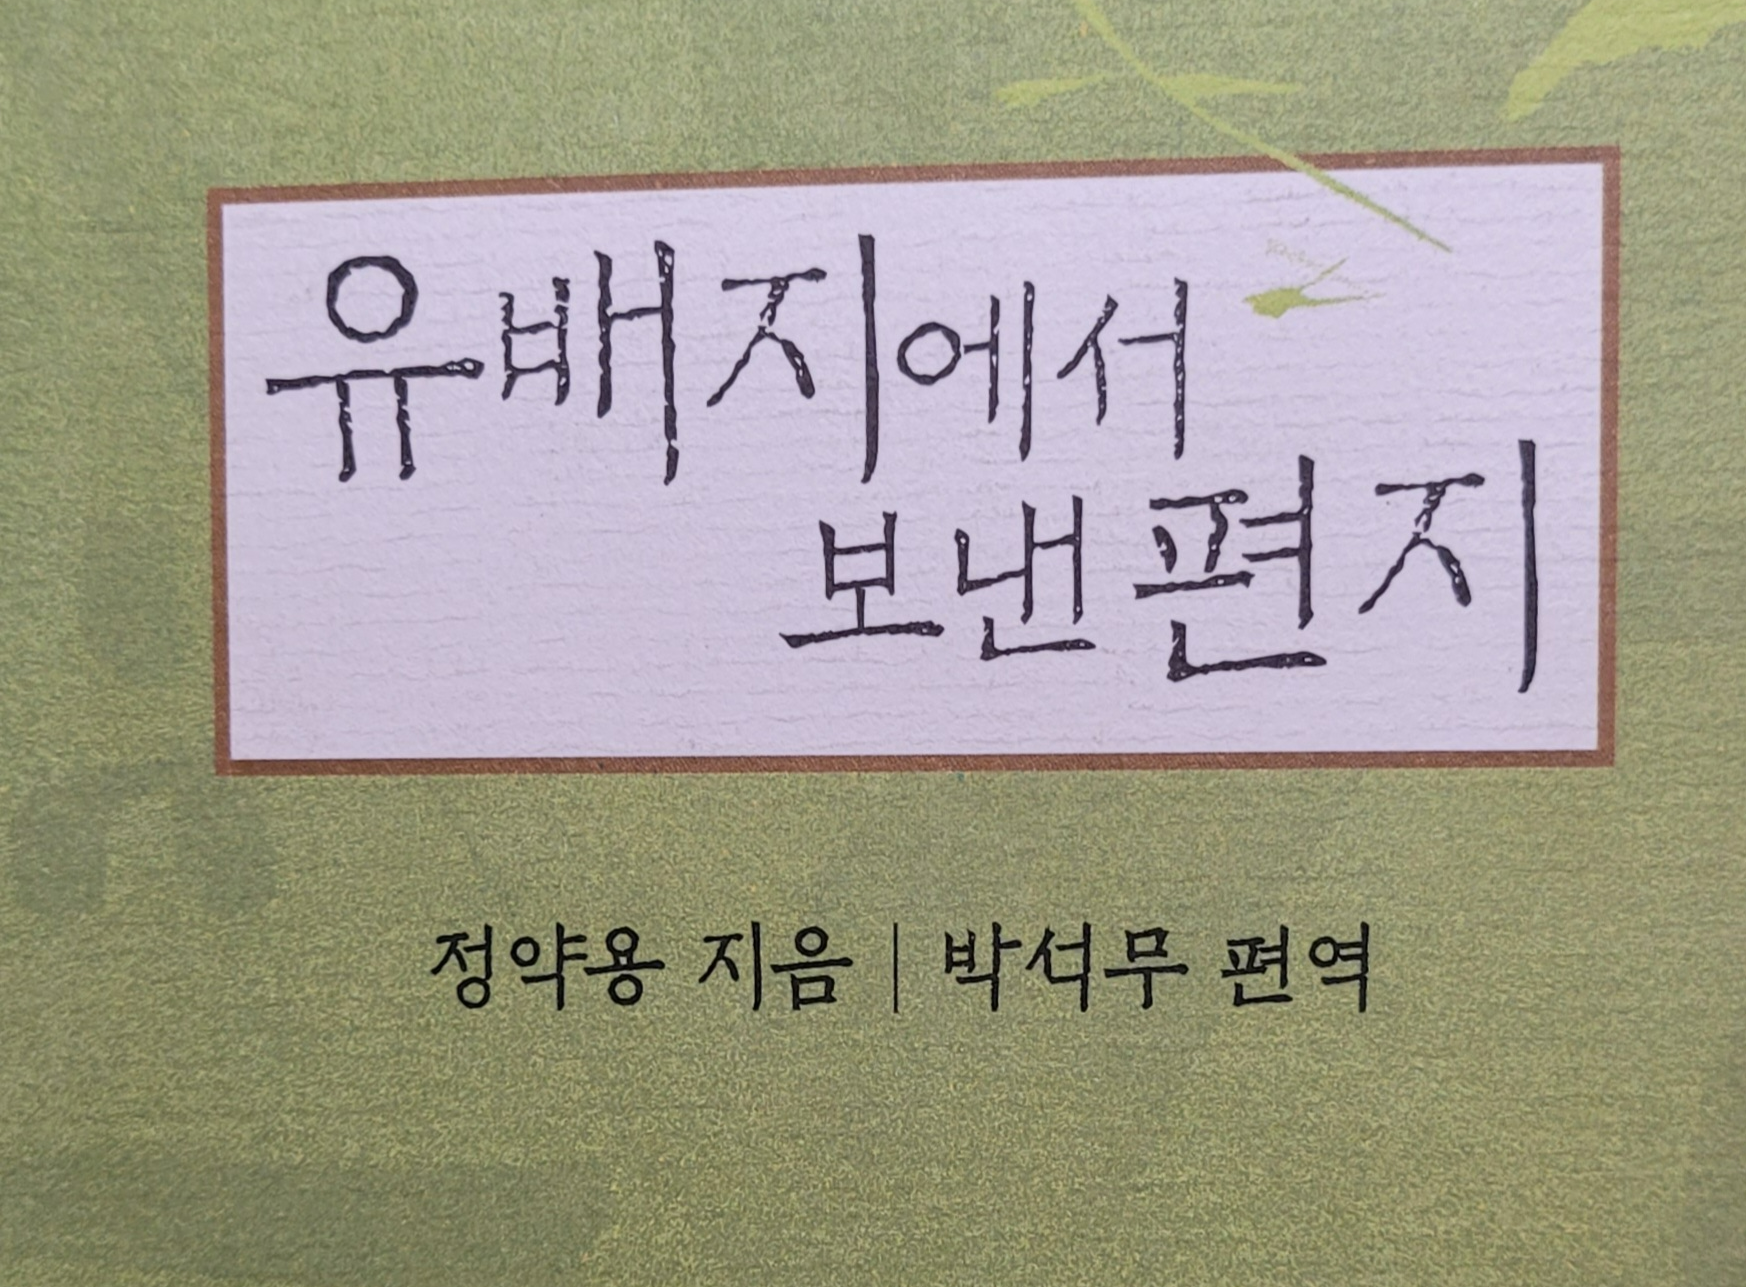 유배지에서
보낸 편지
정약용 지음 | 박석무 편역